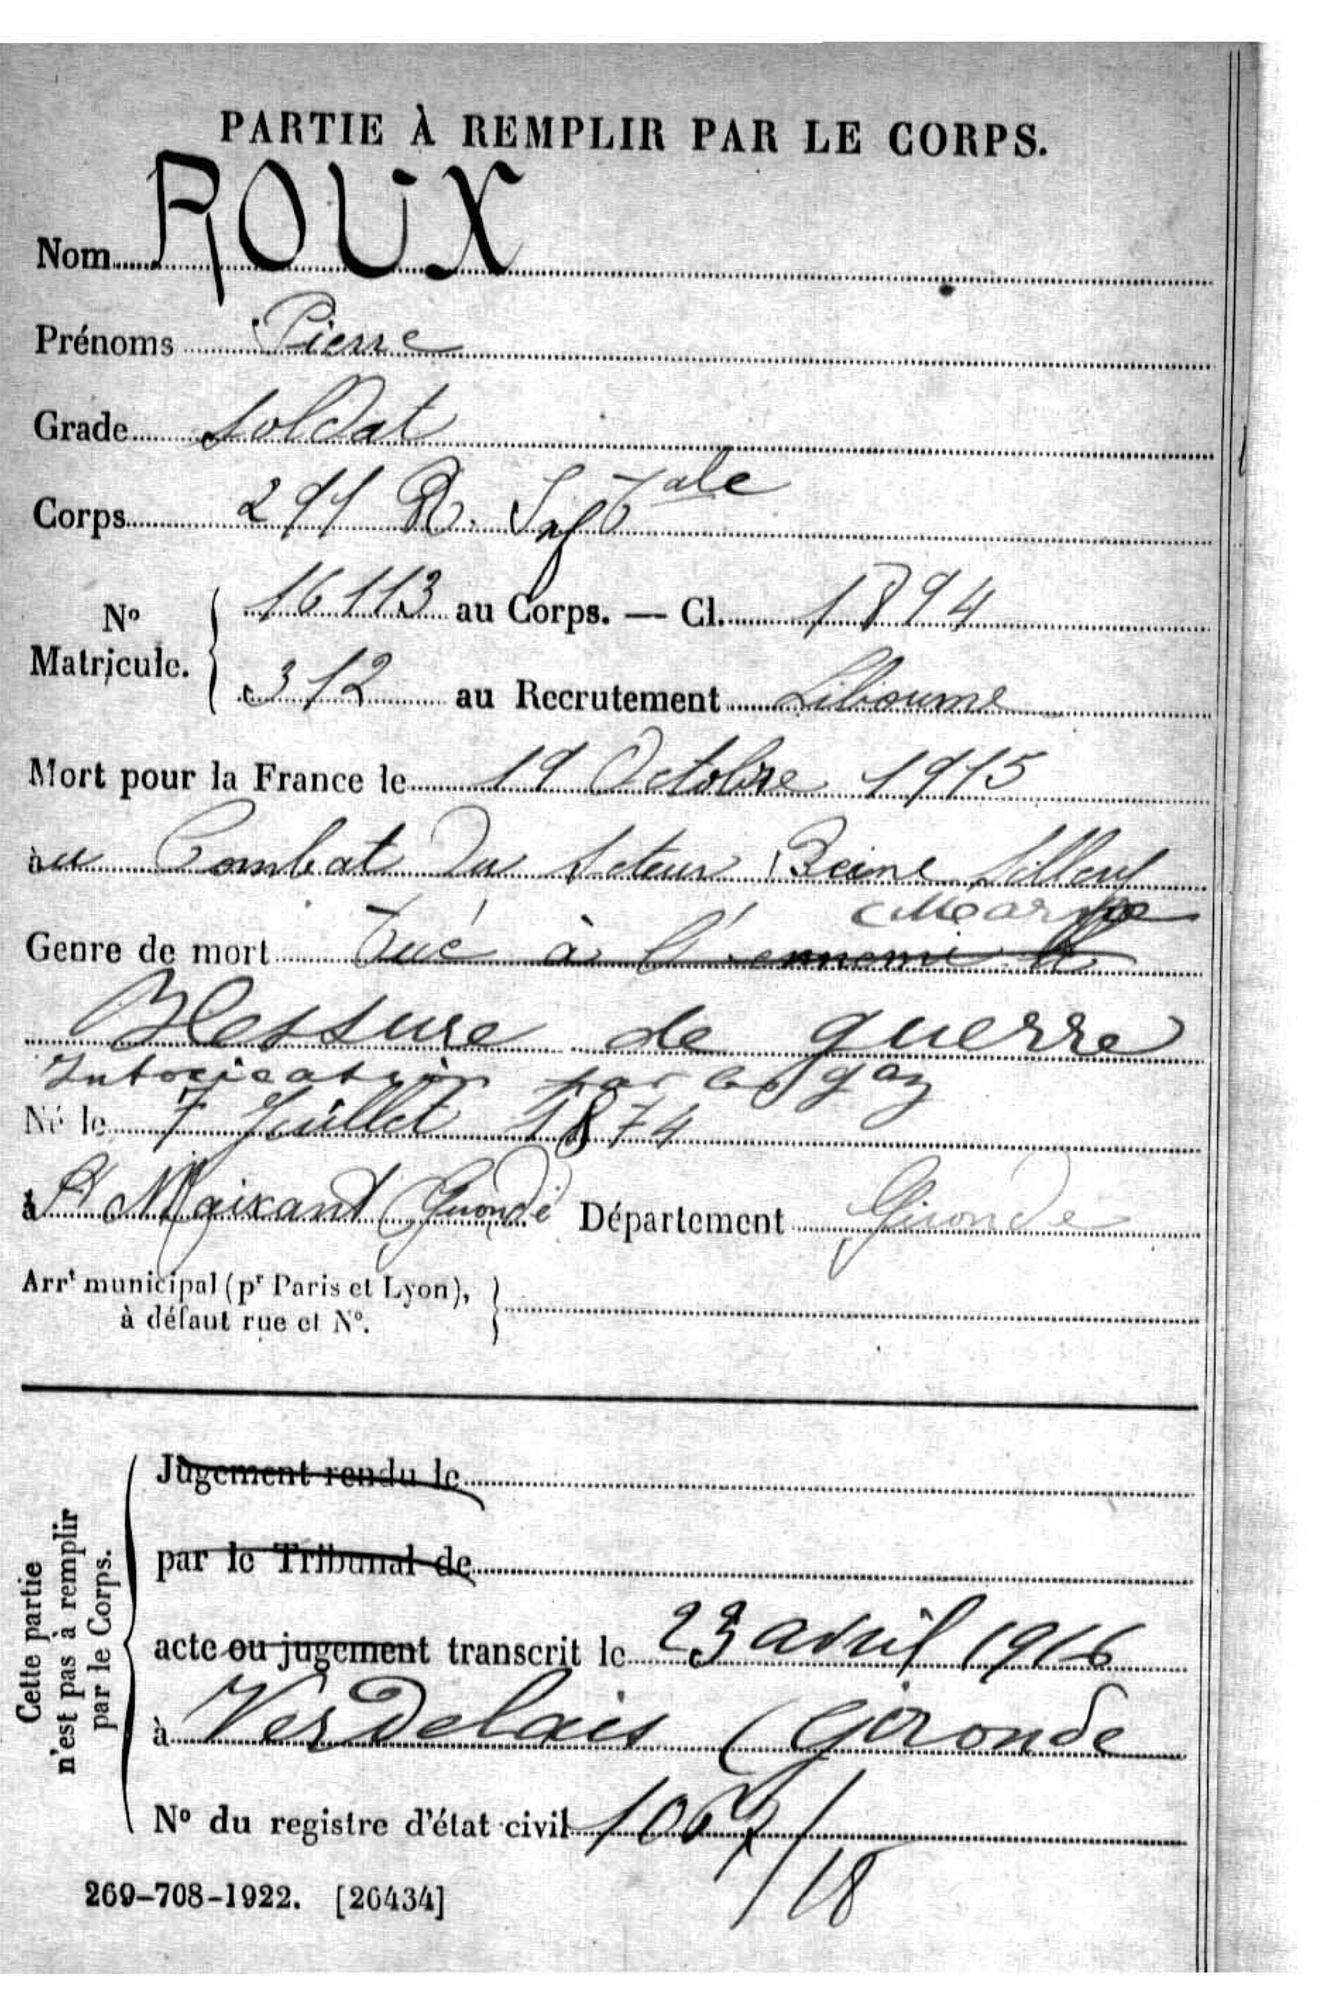 PARTIE À REMPLIR PAR LE CORPS.
Nom ROUX
Prénoms Pierre
Grade Soldat
Corps 291 R. Inf Tale
No Matricule. 16113 au Corps. — Cl. 1894
312 au Recrutement Libourne
Mort pour la France le 19 Octobre 1915
au Combat du Secteur Beine Sillery
Marne
Genre de mort Tué à l'ennemi
Blessure de guerre
Intoxication par les gaz
Né le 7 Juillet 1874
à St Maixant (Gironde Département Gironde
Arrt municipal (pr Paris et Lyon),
à défaut rue et No.
Cette partie n'est pas à remplir par le Corps.
Jugement rendu le
par le Tribunal de
acte ou jugement transcrit le 23 avril 1916
à Verdelais (Gironde
No du registre d'état civil 1067/18
269-708-1922. [26434]